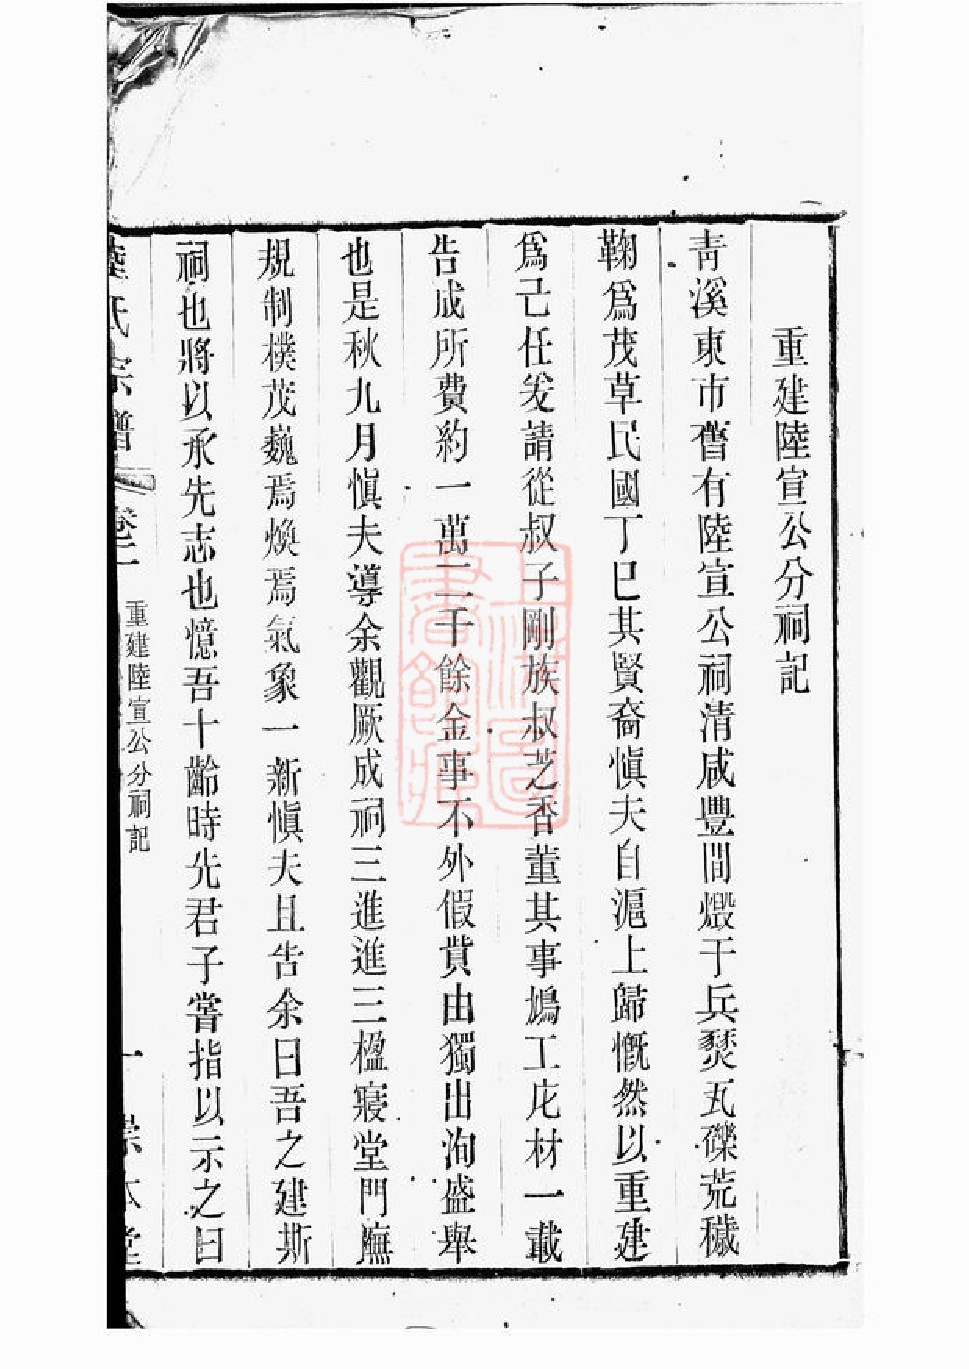 重建陸宣公分祠記
靑溪東市舊有陸宣公祠清咸豐間燬于兵燹瓦礫荒穢
鞠爲茂草民國丁巳其賢裔愼夫自滬上歸慨然以重建
爲己任爰請從叔子剛族叔芝香董其事鳩工庀材一載
告成所費約一萬二千餘金事不外假貲由獨出洵盛舉
也是秋九月愼夫導余觀厥成祠三進進三楹寢堂門廡
規制樸茂巍焉煥焉氣象一新愼夫且告余曰吾之建斯
祠也將以承先志也憶吾十齡時先君子嘗指以示之曰
陸氏宗譜 卷一 重建陸宣公分祠記 一 崇本堂
上海圖書館藏